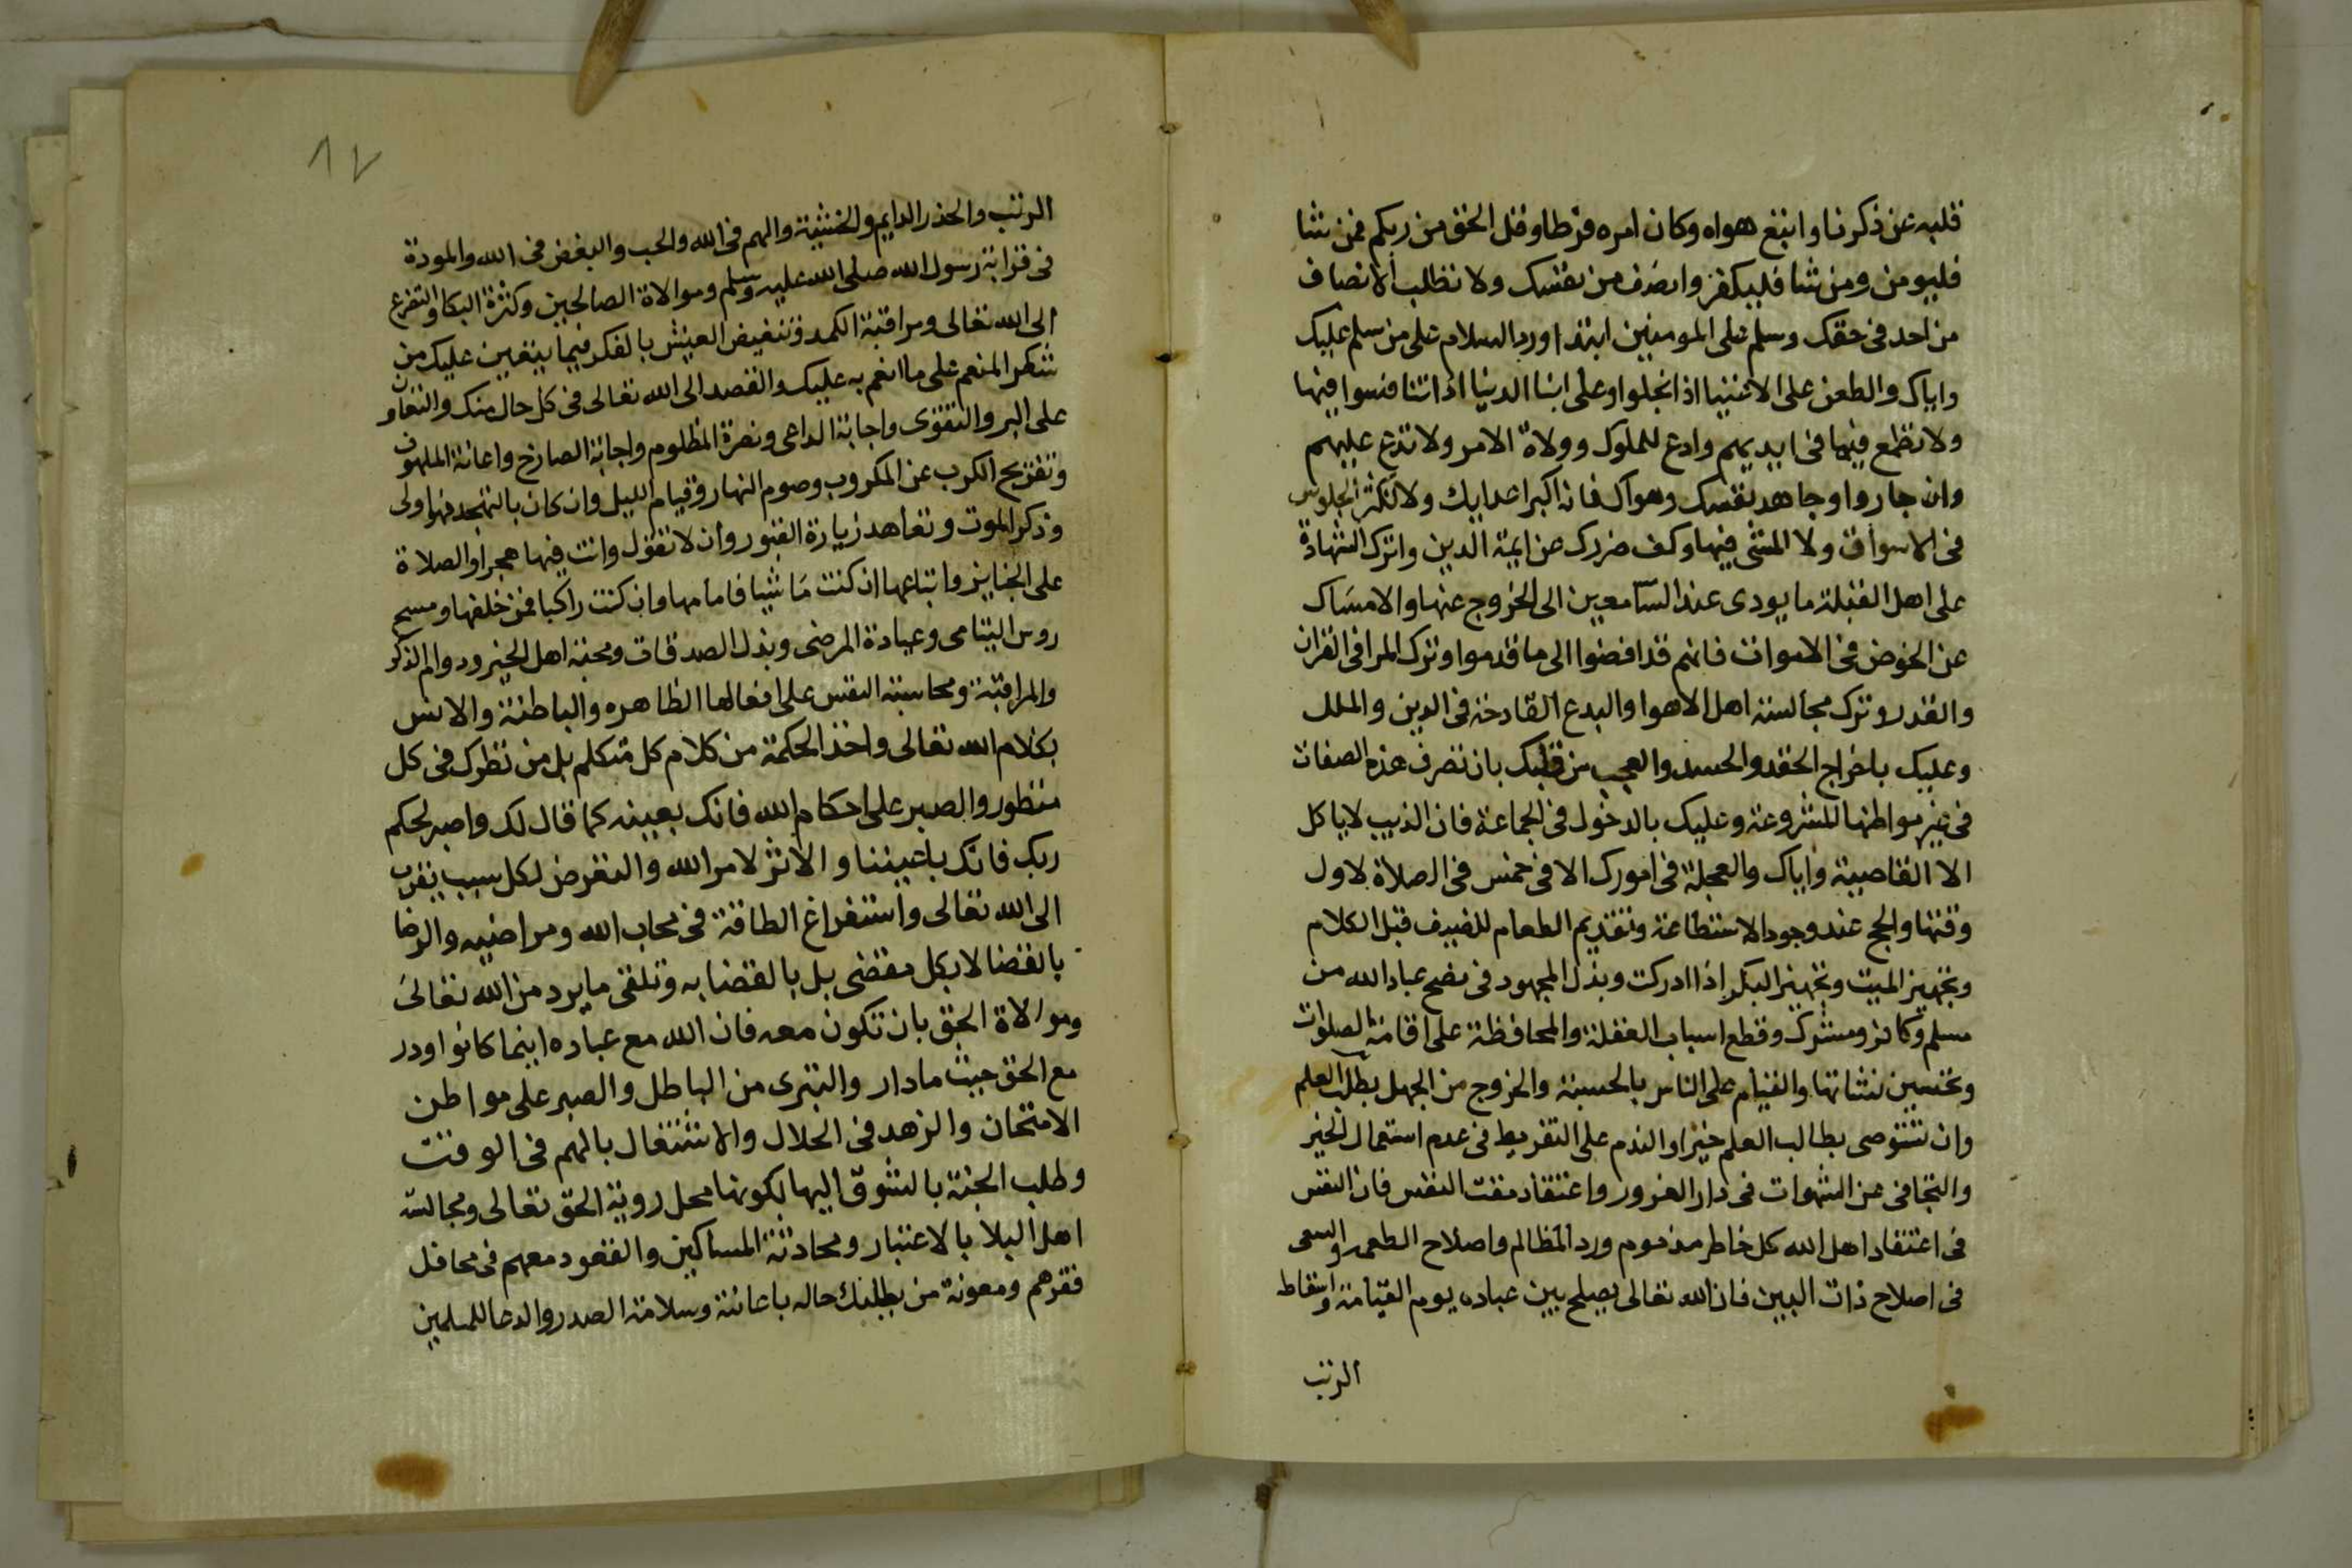 قلبه عن ذكرنا واتبع هواه وكان امره فرطا وقل الحق من ربكم فمن شا
فليومن ومن شا فليكفر وانصف من نفسك ولا تطلب الانصاف
من احد فى حقك وسلم على المومنين ابتدا ورد السلام على من سلم عليك
واياك والطعن على الاغنيا اذا بخلوا وعلى ابنا الدنيا اذا تنافسوا فيها
ولا تطمع فيما فى ايديهم وادع للملوك وولاة الامر ولا تدع عليهم
وان جاروا وجاهد نفسك وهواك فانه اكبر اعدايك ولا تكثر الجلوس
فى الاسواق ولا المشى فيها وكف ضررك عن ايمة الدين واترك الشهادة
على اهل القبلة ما يودى عند السامعين الى الخروج عنها والامساك
عن الخوض فى الاموات فانهم قد افضوا الى ما قدموا وترك المرا فى القران
والقدر وترك مجالسة اهل الاهوا والبدع القادحة فى الدين والملل
وعليك باخراج الحقد والحسد والعجب من قلبك بان تصرف هذه الصفات
فى غير مواطنها المشروعة وعليك بالدخول فى الجماعة فان الذيب لا ياكل
الا القاصية واياك والعجلة فى امورك الا فى خمس فى الصلاة لاول
وقتها والحج عند وجود الاستطاعة وتقديم الطعام للضيف قبل الكلام
وتجهيز الميت وتجهيز البكر اذا ادركت وبذل المجهود فى نصح عباد الله من
مسلم وكافر ومشرك وقطع اسباب الغفلة والمحافظة على اقامة الصلوات
وتحسين نشاتها والقيام على الناس بالحسبة والخروج من الجهل بطلب العلم
وان تستوصى بطالب العلم خيرا والندم على التفريط فى عدم استعمال الخير
والتجافى عن الشهوات فى دار الغرور واعتقاد مقت النفس فان النفس
فى اعتقاد اهل الله كل خاطر مذموم ورد المظالم واصلاح الطعمه والسعى
فى اصلاح ذات البين فان الله تعالى يصلح بين عباده يوم القيامة واسقاط
الرتب
١٧
الرتب والحذر الدايم والخشية والهم فى الله والحب والبغض فى الله والمودة
فى قرابة رسول الله صلى الله عليه وسلم وموالاة الصالحين وكثرة البكا والتضرع
الى الله تعالى ومراقبة الكمد وتنغيص العيش بالفكر فيما يتعين عليك من
شكر المنعم على ما انعم به عليك والقصد الى الله تعالى فى كل حال منك والتعاون
على البر والتقوى واجابة الداعى ونصرة المظلوم واجابة الصارخ واعانة الملهوف
وتفريج الكرب عن المكروب وصوم النهار وقيام الليل وان كان بالتهجد فهو اولى
وذكر الموت وتعاهد زيارة القبور وان لا تقول وانت فيها هجرا والصلاة
على الجنايز واتباعها ان كنت ماشيا فامامها وان كنت راكبا فمن خلفها ومسح
روس اليتامى وعيادة المرضى وبذل الصدقات ومحبة اهل الخير ودوام الذكر
والمراقبة ومحاسبة النفس على افعالها الظاهره والباطنة والانس
بكلام الله تعالى واخذ الحكمة من كلام كل متكلم بل من نظرك فى كل
منظور والصبر على احكام الله فانك بعينه كما قال لك واصبر لحكم
ربك فانك باعيننا والاثر لامر الله والتعرض لكل سبب يقرب
الى الله تعالى واستفراغ الطاقة فى محاب الله ومراضيه والرضا
بالقضا لا بكل مقضى بل بالقضا به وتلقى ما يرد من الله تعالى
وموالاة الحق بان تكون معه فان الله مع عباده اينما كانوا ودر
مع الحق حيث ما دار والتبرى من الباطل والصبر على مواطن
الامتحان والزهد فى الحلال والاشتغال بالمهم فى الوقت
وطلب الجنة بالتشوق اليها لكونها محل روية الحق تعالى ومجالسة
اهل البلا بالاعتبار ومحادثة المساكين والقعود معهم فى محافل
فقرهم ومعونة من يطلبك حاله باعانته وسلامة الصدر والدعا للمسلمين